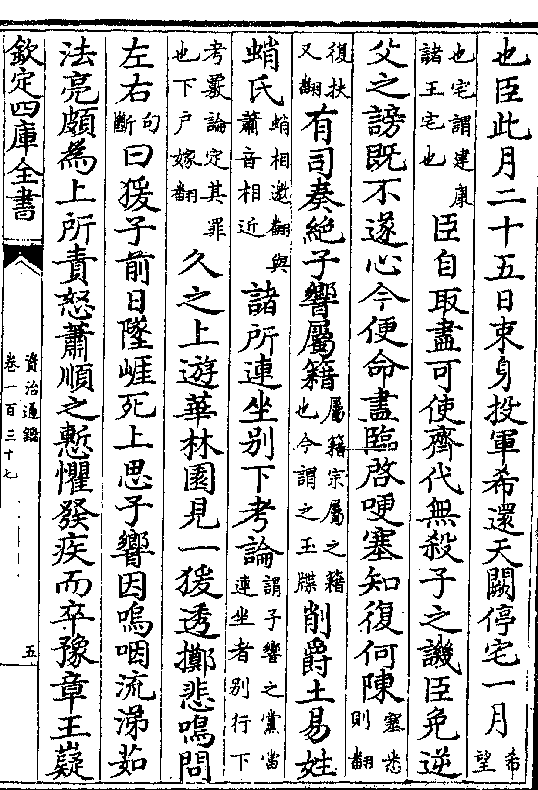 也臣此月二十五日束身投軍希還天闕停宅一月希望
也宅謂建康諸王宅也臣自取盡可使齊代無殺子之譏臣免逆
父之謗既不遂心今便命盡臨啓哽塞知復何陳塞悉則翻
復扶又翻有司奏絶子響屬籍屬籍宗屬之籍也今謂之玉牒削爵土易姓
蛸氏蛸相邀翻與蕭音相近諸所連坐别下考論謂子響之黨當連坐者别行下
考覈論定其罪也下戸嫁翻久之上遊華林園見一猨透擲悲鳴問
左右句斷曰猨子前日墜崖死上思子響因嗚咽流涕茹
法亮頗為上所責怒蕭順之慙懼發疾而卒豫章王嶷
欽定四庫全書
資治通鑑
卷一百三十七
五